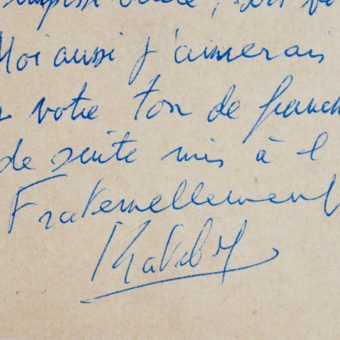 Moi aussi j'aimerais
votre ton de franch
de suite mis à l
Fraternellement